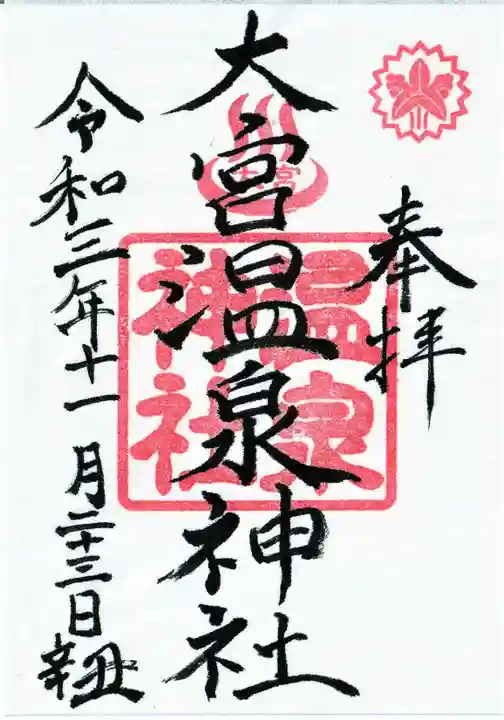 奉拝
大宮温泉神社
大宮
温泉
神社
令和三年十一月二十三日辛丑